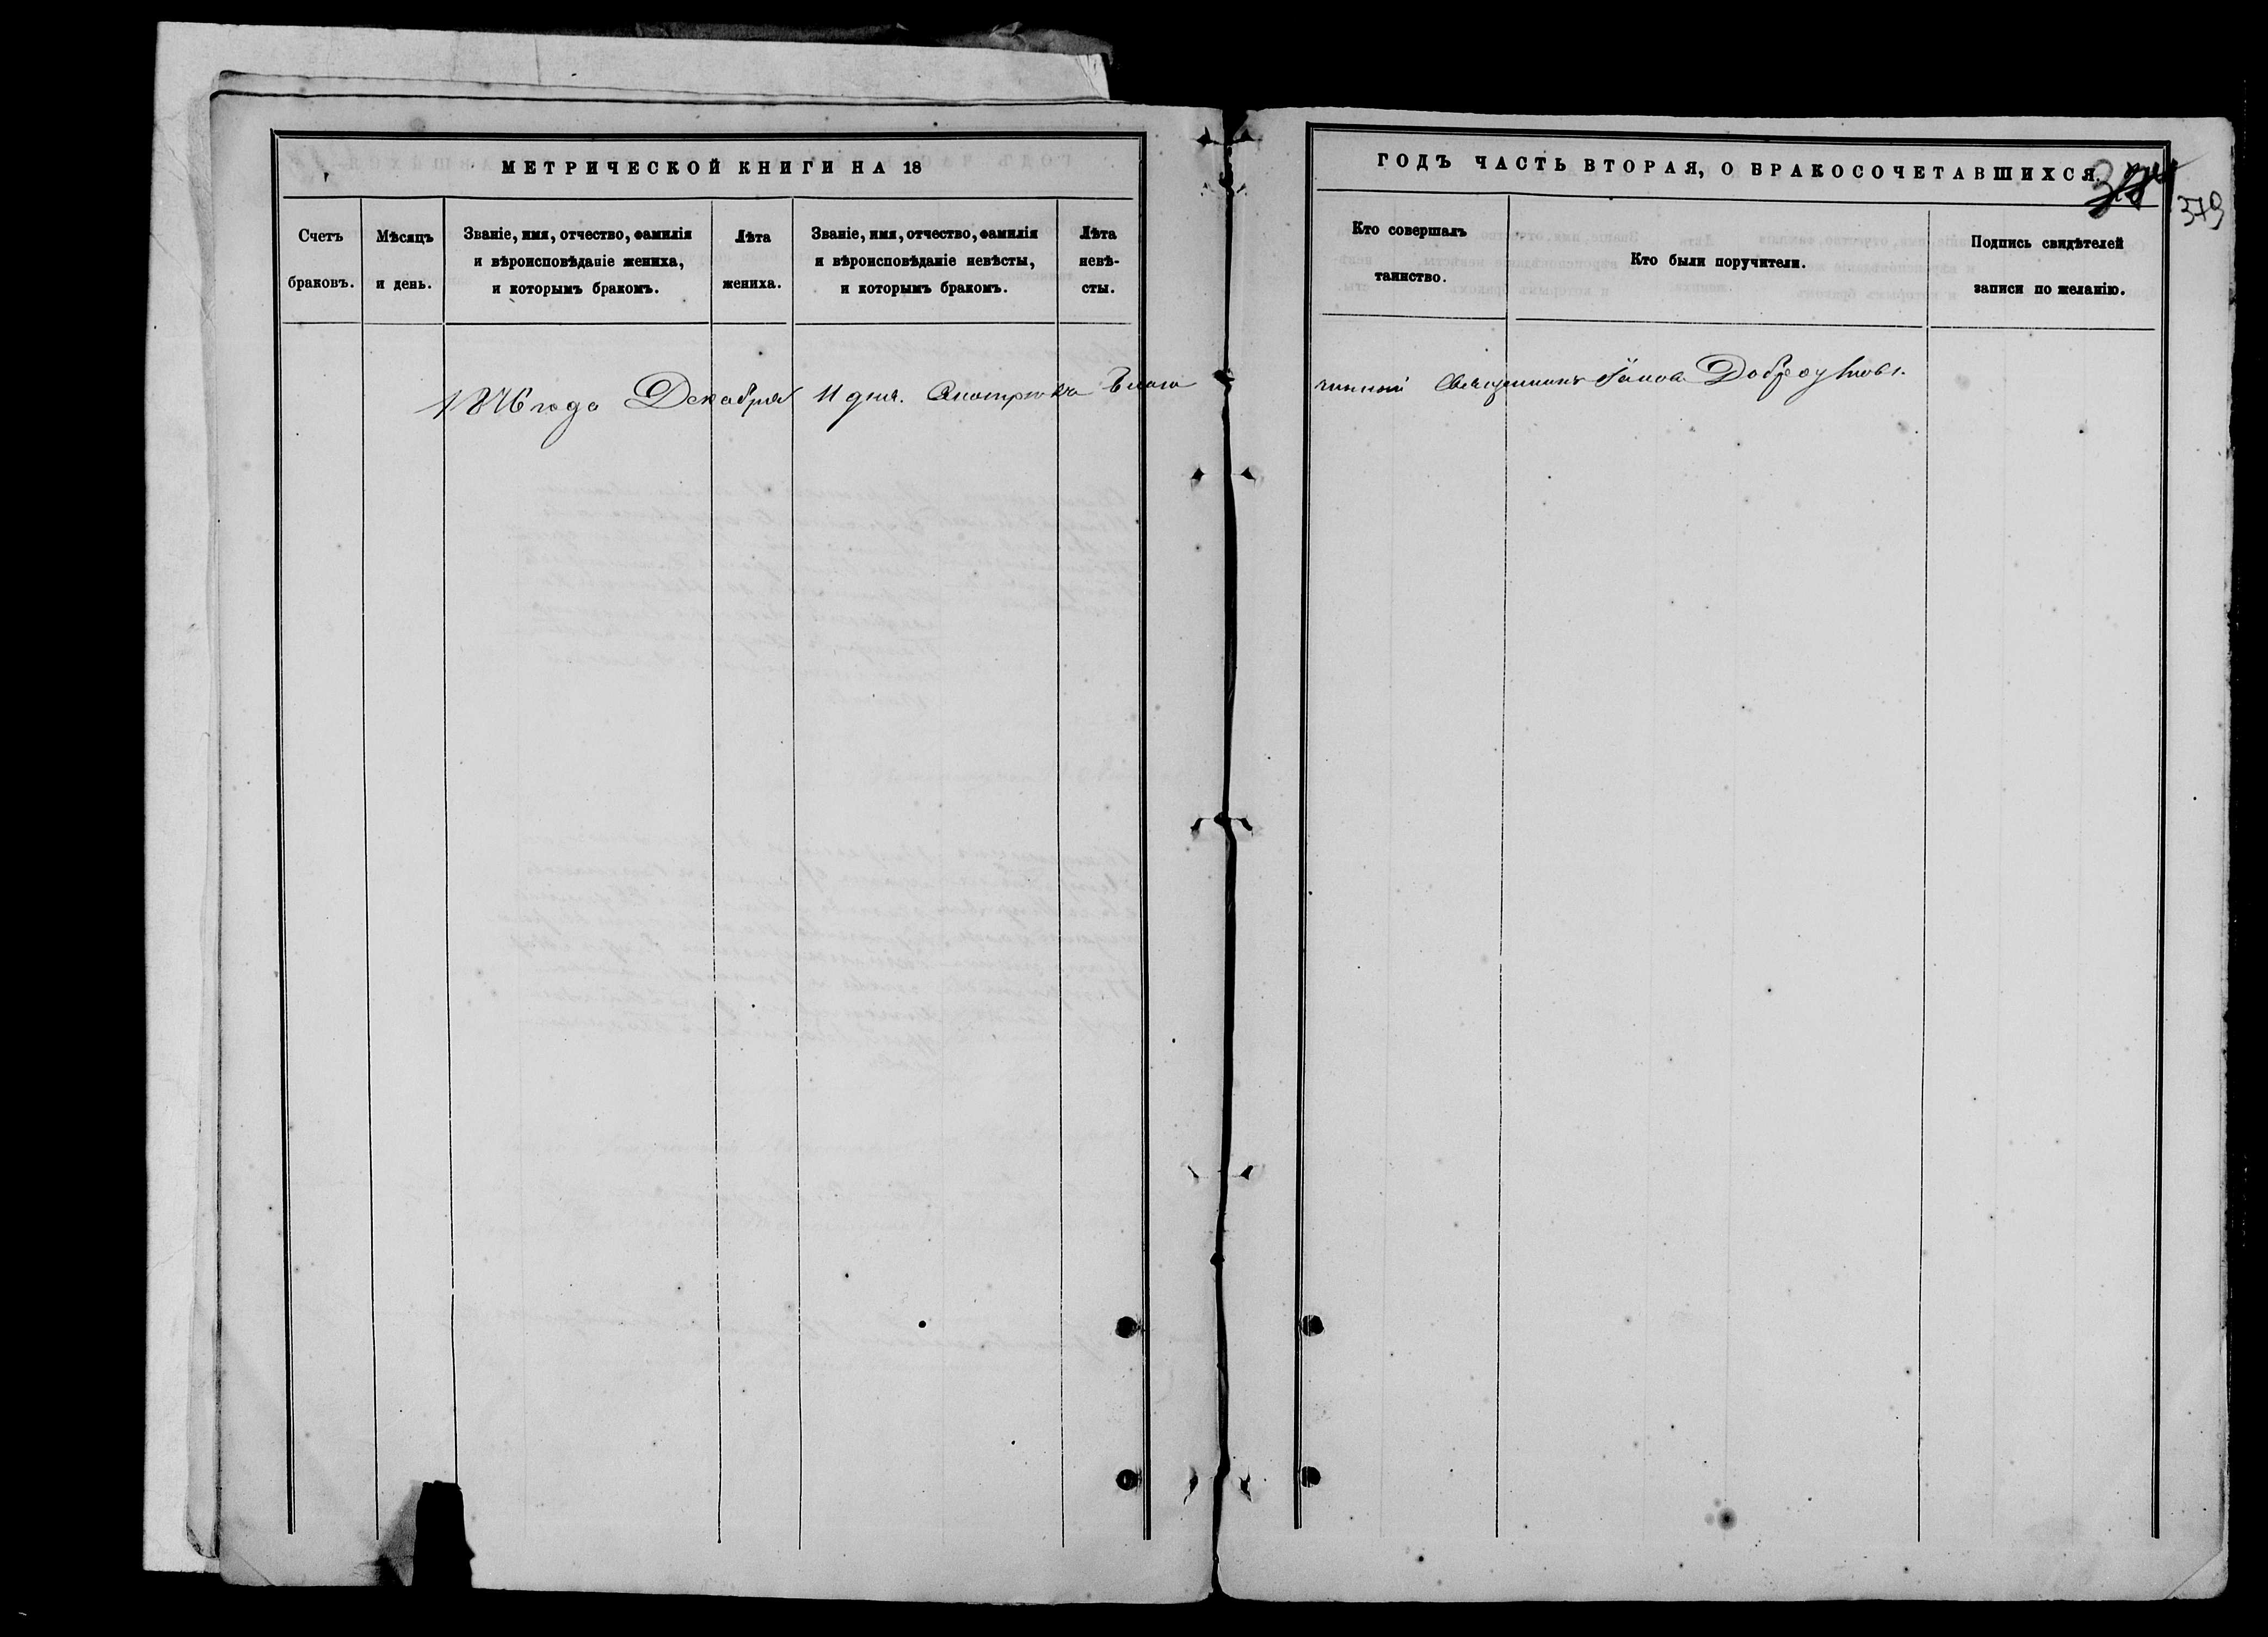 МЕТРИЧЕСКОЙ КНИГИ НА 18
Счетъ браковъ.
Мѣсяцъ и день.
Званіе, имя, отчество, фамилія
и вѣроисповѣданіе жениха,
и которымъ бракомъ.
Лѣта жениха.
Званіе, имя, отчество, фамилія
и вѣроисповѣданіе невѣсты,
и которымъ бракомъ.
Лѣта невѣ-
сты.
1876 года Декабря 11 дня. Смотрѣлъ Благо
ГОДЪ ЧАСТЬ ВТОРАЯ, О БРАКОСОЧЕТАВШИХСЯ.
379
Кто совершалъ
таинство.
Кто были поручители.
Подпись свидѣтелей
записи по желанію.
чинный Священникъ